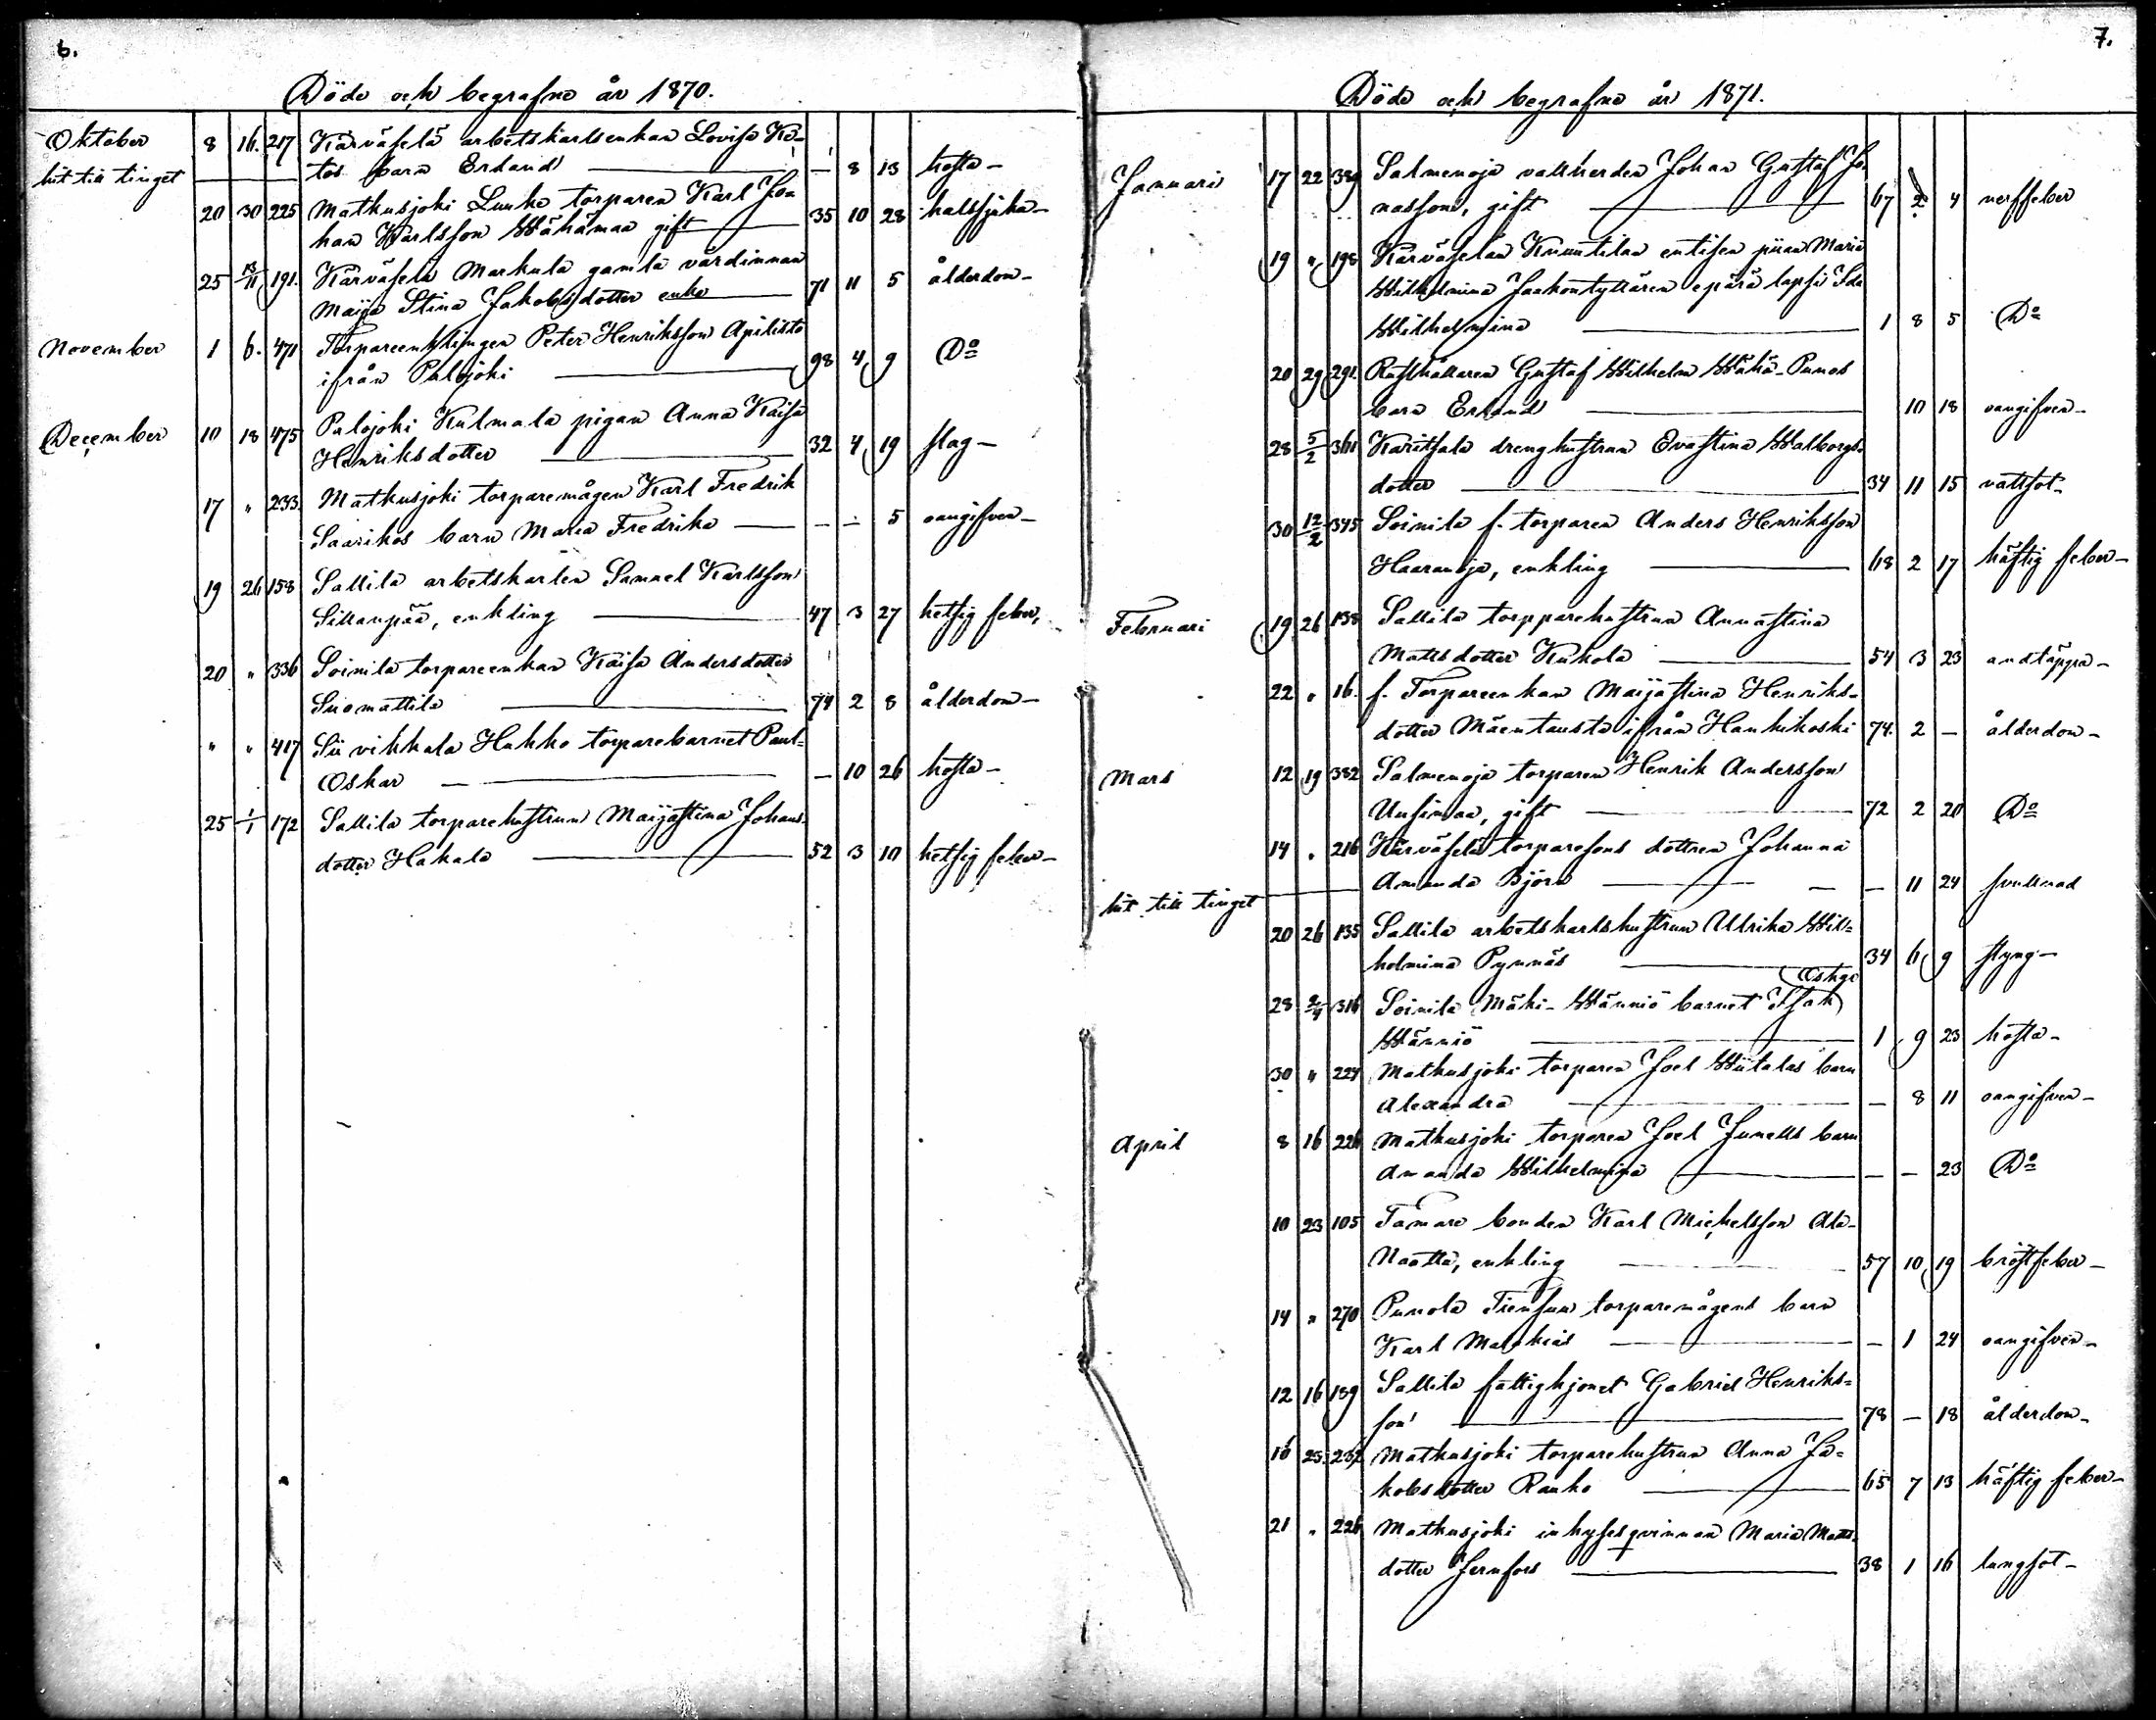 6.
Döde och begrafne år 1870.
Oktober 8 16. 217 Karväselä arbetskarlsenkan Lovisa Ka-
hit till tinget tos barn Erland — 8 13 hosta
20 30 225 Matkusjoki Luuko torparen Karl Jo-
han Karlsson Wähämaa gift 35 10 28 halssjuka
25 13/11 191. Karväselä Markula gamla värdinnan
Maija Stina Jakobsdotter enka 71 11 5 ålderdom
November 1 6. 471 Torpareenklingen Peter Henriksson Apilisto
ifrån Palojoki 98 4 9 Do
December 10 18 475 Palojoki Kulmala pigan Anna Kaisa
Henriksdotter 32 4 19 slag
17 " 233. Matkusjoki torparemågen Karl Fredrik
Saarikos barn Maria Fredrika — — 5 oangifven
19 26 158 Sallila arbetskarlen Samuel Karlsson
Sillanpää, enkling 47 3 27 hetsig feber,
20 " 336 Soinila torpareenkan Kaisa Andersdotter
Suomattila 74 2 8 ålderdom
" " 417 Sii vikkala Hukko torparebarnet Paul-
Oskar — 10 26 hosta
25 1/1 172 Sallila torparehustrun Maijastina Johans-
dotter Hakala 52 3 10 hetsig feber
7.
Döde och begrafne år 1871.
Januari 17 22 389 Salmenoja vallherden Johan Gustaf Jo-
nasson, gift 67 2 4 nerffeber
19 " 198 Karväselän Knuutilan entisen piian Maria
Wilhelmina Jaakontyttären epärä lapsi Ida
Wilhelmina 1 8 5 Do
20 29 291. Rusthållaren Gustaf Wilhelm Wähä-Punos
barn Erland 10 18 oangifven
28 5/2 361 Karitsala drenghustrun Evastina Walborgs-
dotter 34 11 15 vattsot
30 12/2 345 Soinila f. torparen Anders Henriksson
Haaranoja, enkling 68 2 17 häftig feber
Februari 19 26 138 Sallila torpparehustrun Annastina
Mattsdotter Kukola 54 3 23 andtäppa
22 " 16. f. Torpareenkan Maijastina Henriks-
dotter Mäentausta ifrån Hankikoski 74. 2 — ålderdom
Mars 12 19 382 Salmenoja torparen Henrik Andersson
Uusimaa, gift 72 2 20 Do
14 " 216 Karväselä torparesons dottren Johanna
Amanda Björn — 11 24 svullnad
hit till tinget
20 26 135 Sallila arbetskarlshustrun Ulrika Wil-
helmina Pynnäs 34 6 9 styng
28 2/4 316 Soinila Mäki-Wänniö barnet Isak
Wänniö 1 9 23 hosta
30 " 224 Matkusjoki torparen Joel Wiitalas barn
Alexandra — 8 11 oangifven
April 8 16 226 Matkusjoki torparen Joel Junells barn
Amanda Wilhelmina — — 23 Do
10 23 105 Tamare bonden Karl Michelsson Ala-
Naatta, enkling 57 10 19 bröstfeber
14 " 270 Punola Tiensuu torparemågens barn
Karl Mathias — 1 24 oangifven
12 16 189 Sallila fattighjonet Gabriel Henriks-
son 78 — 18 ålderdom
16 23 232 Matkusjoki torparehustrun Anna Ja-
kobsdotter Rauko 65 7 13 häftig feber
21 " 226 Matkusjoki inhysesqvinnan Maria Matts-
dotter Jernfors 38 1 16 lungsot